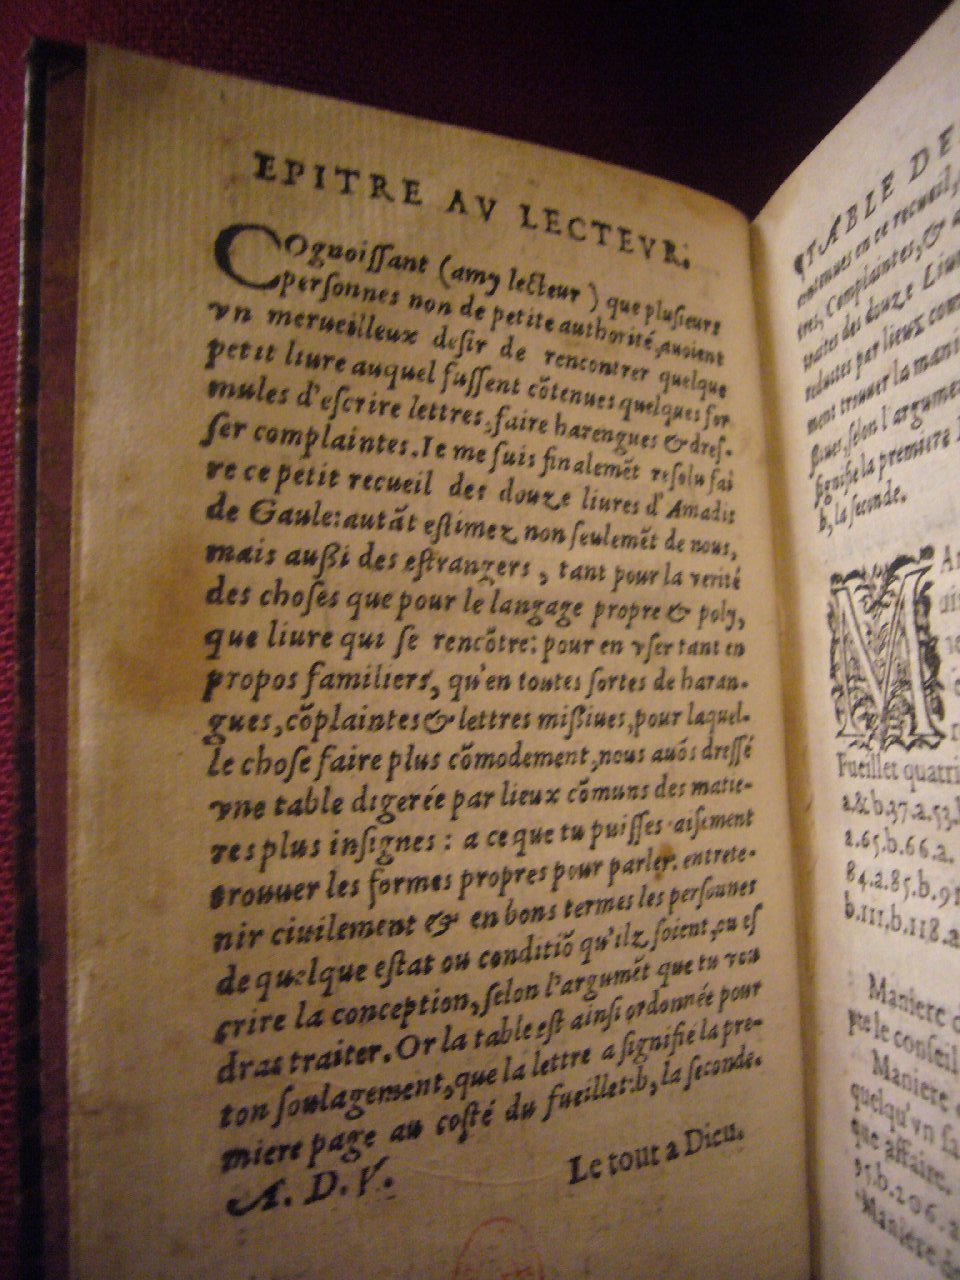 EPITRE AV LECTEVR.
COgnoissant (amy lecteur) que plusieurs
personnes non de petite authorité, auoient
vn merueilleux desir de rencontrer quelque
petit liure auquel fussent cõtenues quelques for
mules d'escrire lettres, faire harengues & dres-
ser complaintes. Ie me suis finalemẽt resolu fai
re ce petit recueil des douze liures d'Amadis
de Gaule: autãt estimez non seulemẽt de nous,
mais außi des estrangers, tant pour la verité
des choses que pour le langage propre & poly,
que liure qui se rencõtre: pour en vser tant en
propos familiers, qu'en toutes sortes de haran-
gues, cõplaintes & lettres mißiues, pour laquel-
le chose faire plus cõmodement, nous auõs dressé
vne table digerée par lieux cõmuns des matie-
res plus insignes: a ce que tu puisses aisement
trouuer les formes propres pour parler, entrete-
nir ciuilement & en bons termes les personnes
de quelque estat ou conditiõ qu'ilz soient, ou es
crire la conception, selon l'argumẽt que tu vou
dras traiter. Or la table est ainsi ordonnée pour
ton soulagement, que la lettre a signifie la pre-
miere page au costé du fueillet: b, la seconde.
A. D. V. Le tout a Dieu.
¶TABLE DE
contenues en ce recueil,
tres, Complaintes, &
traites des douze Liu
reduites par lieux com
ment trouuer la mani
selon l'argume
signifie la premiere
b, la seconde.
M
Fueillet quatri
a.& b.37.a.53.b
a.65.b.66.a.
84.a.85.b.91
b.111.b.118.a
Maniere d
pre le conseil
Maniere
quelqu'vn fa
que affaire.
95.b.106.a
Maniere de